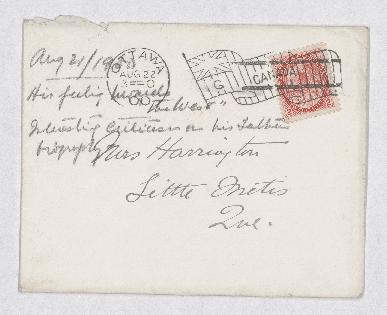 Aug 21/1900
OTTAWA
AUG 22
00
CANADA
His feeling towards
"the West"
Interesting Criticism on his Father's
biography
Mrs Harrington
Little Metis
Que.